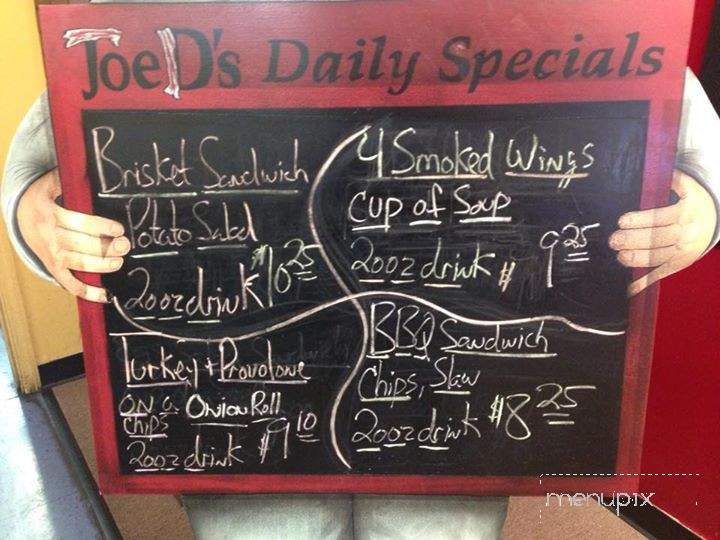 JoeD's Daily Specials
Brisket Sandwich
Potato Salad
20oz drink $10 25
4 Smoked Wings
cup of Soup
20oz drink $ 9 25
Turkey + Provolone
on a Onion Roll
chips
20oz drink $9 10
BBQ Sandwich
Chips, Slaw
20oz drink $8 25
menupix